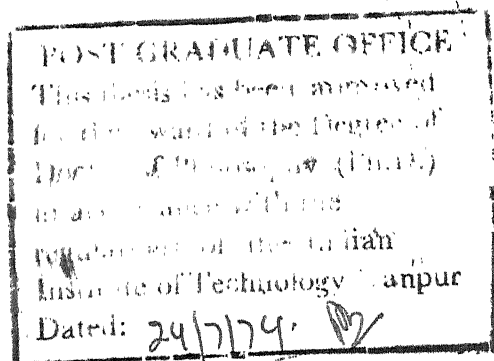 POST GRADUATE OFFICE
This thesis has been approved
for the award of the Degree of
Doctor of Philosophy (Ph.D.)
in accordance with the
regulations of the Indian
Institute of Technology Kanpur
Dated: 24/7/74.